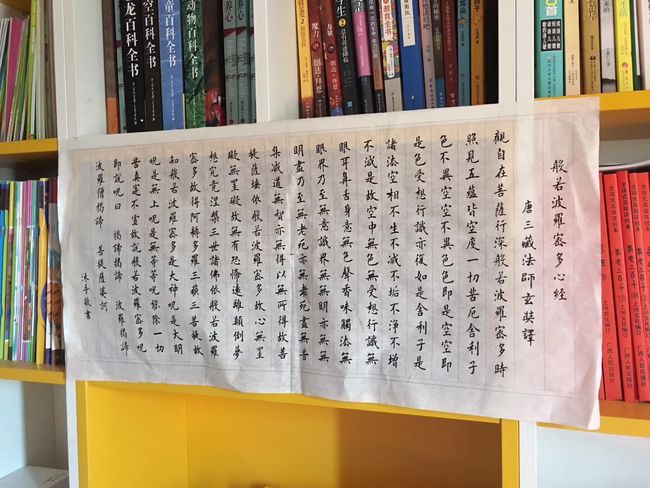 龙百科全书
空百科全书
童百科全书
动物百科全书
般若波羅密多心經
唐三藏法師玄奘譯
觀自在菩薩行深般若波羅密多時
照見五蘊皆空度一切苦厄舍利子
色不異空空不異色色即是空空即
是色受想行識亦復如是舍利子是
諸法空相不生不滅不垢不淨不增
不減是故空中無色無受想行識無
眼耳鼻舌身意無色聲香味觸法無
眼界乃至無意識界無無明亦無無
明盡乃至無老死亦無老死盡無苦
集滅道無智亦無得以無所得故菩
提薩埵依般若波羅密多故心無罣
礙無罣礙故無有恐怖遠離顛倒夢
想究竟涅槃三世諸佛依般若波羅
密多故得阿耨多羅三藐三菩提故
知般若波羅密多是大神呪是大明
呪是無上呪是無等等呪能除一切
苦真實不虛故說般若波羅密多呪
即說呪曰 揭諦揭諦 波羅揭諦
波羅僧揭諦 菩提薩婆訶
沐手敬書
广西人民出版社
广西人民出版社